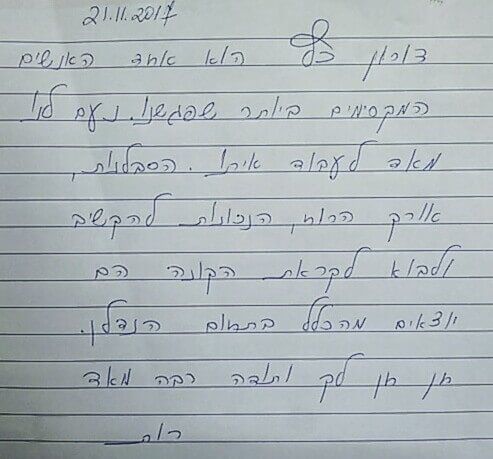 21.11.2017
דורון כץ הוא אחד האנשים
המקסימים ביותר שפגשנו. נעם לנו
מאד לעבוד איתו. הסבלנות,
אורך הרוח, הנכונות להקשיב
ולבוא לקראת הקונה הם
יוצאים מהכלל בתחום הנדלן.
חן חן לך ותודה רבה מאד
רות